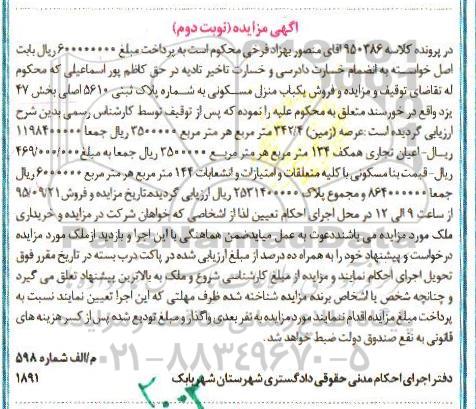 آگهی مزایده (نوبت دوم)
در پرونده کلاسه ۹۵۰۳۸۶ آقای منصور بهزاد فرخی محکوم است به پرداخت مبلغ ۶۰۰۰۰۰۰۰۰ ریال بابت
اصل خواسته به انضمام خسارت دادرسی و خسارت تاخیر تادیه در حق کاظم پور اسماعیلی که محکوم
له تقاضای توقیف و مزایده و فروش یکباب منزل مسکونی به شماره پلاک ثبتی ۵۶۱۰ اصلی بخش ۴۷
یزد واقع در خورسند متعلق به محکوم علیه را نموده که پس از توقیف توسط کارشناس رسمی بدین شرح
ارزیابی گردیده است :عرصه (زمین) ۳۴۲/۴ متر مربع هر متر مربع ۳۵۰۰۰۰۰ ریال جمعا ۱۱۹۸۴۰۰۰۰۰
ریال- اعیان تجاری همکف ۱۳۴ متر مربع هر متر مربع ۳۵۰۰۰۰۰ ریال جمعا به مبلغ ۴۶۹/۰۰۰/۰۰۰
ریال- قیمت بنا مسکونی با کلیه متعلقات و امتیازات و انشعابات ۱۴۴ متر مربع هر متر مربع ۶۰۰۰۰۰۰ ریال
جمعا ۸۶۴۰۰۰۰۰۰ و مجموع پلاک ۲۵۳۱۴۰۰۰۰۰ ریال ارزیابی گردیدتاریخ مزایده و فروش ۹۵/۰۹/۲۱
از ساعت ۹ الی ۱۲ در محل اجرای احکام تعیین لذا از اشخاصی که خواهان شرکت در مزایده و خریداری
ملک مورد مزایده می باشنددعوت به عمل میایدضمن هماهنگی با این اجرا و بازدید ازملک مورد مزایده
درخواست و پیشنهاد خود را به همراه ده درصد از مبلغ ارزیابی شده در پاکت درب بسته در تاریخ مقرر فوق
تحویل اجرای احکام نمایند و مزایده از مبلغ کارشناسی شروع و ملک به بالاترین پیشنهاد تعلق می گیرد
و چنانچه شخص یا اشخاص برنده مزایده شناخته شده ظرف مهلتی که این اجرا تعیین نمایند نسبت به
پرداخت مبلغ مزایده اقدام ننمایند موردمزایده به نفر بعدی واگذار و مبلغ تودیع شده پس از کسر هزینه های
قانونی به نفع صندوق دولت ضبط خواهد شد.
م/الف شماره ۵۹۸
دفتر اجرای احکام مدنی حقوقی دادگستری شهرستان شهربابک
۱۸۹۱
۰۲۱-۸۸۳۴۹۶۷۰-۵